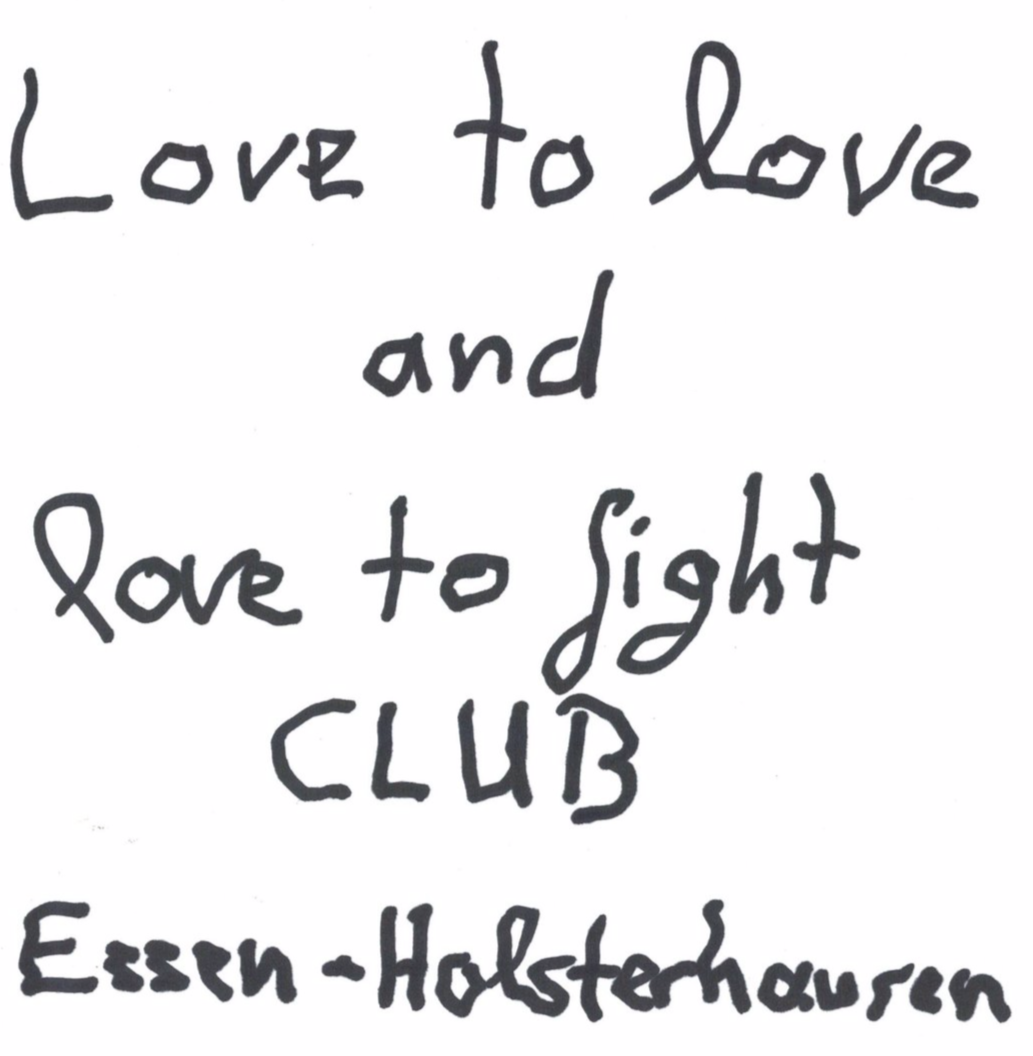 Love to love
and
love to fight
CLUB
Essen-Holsterhausen